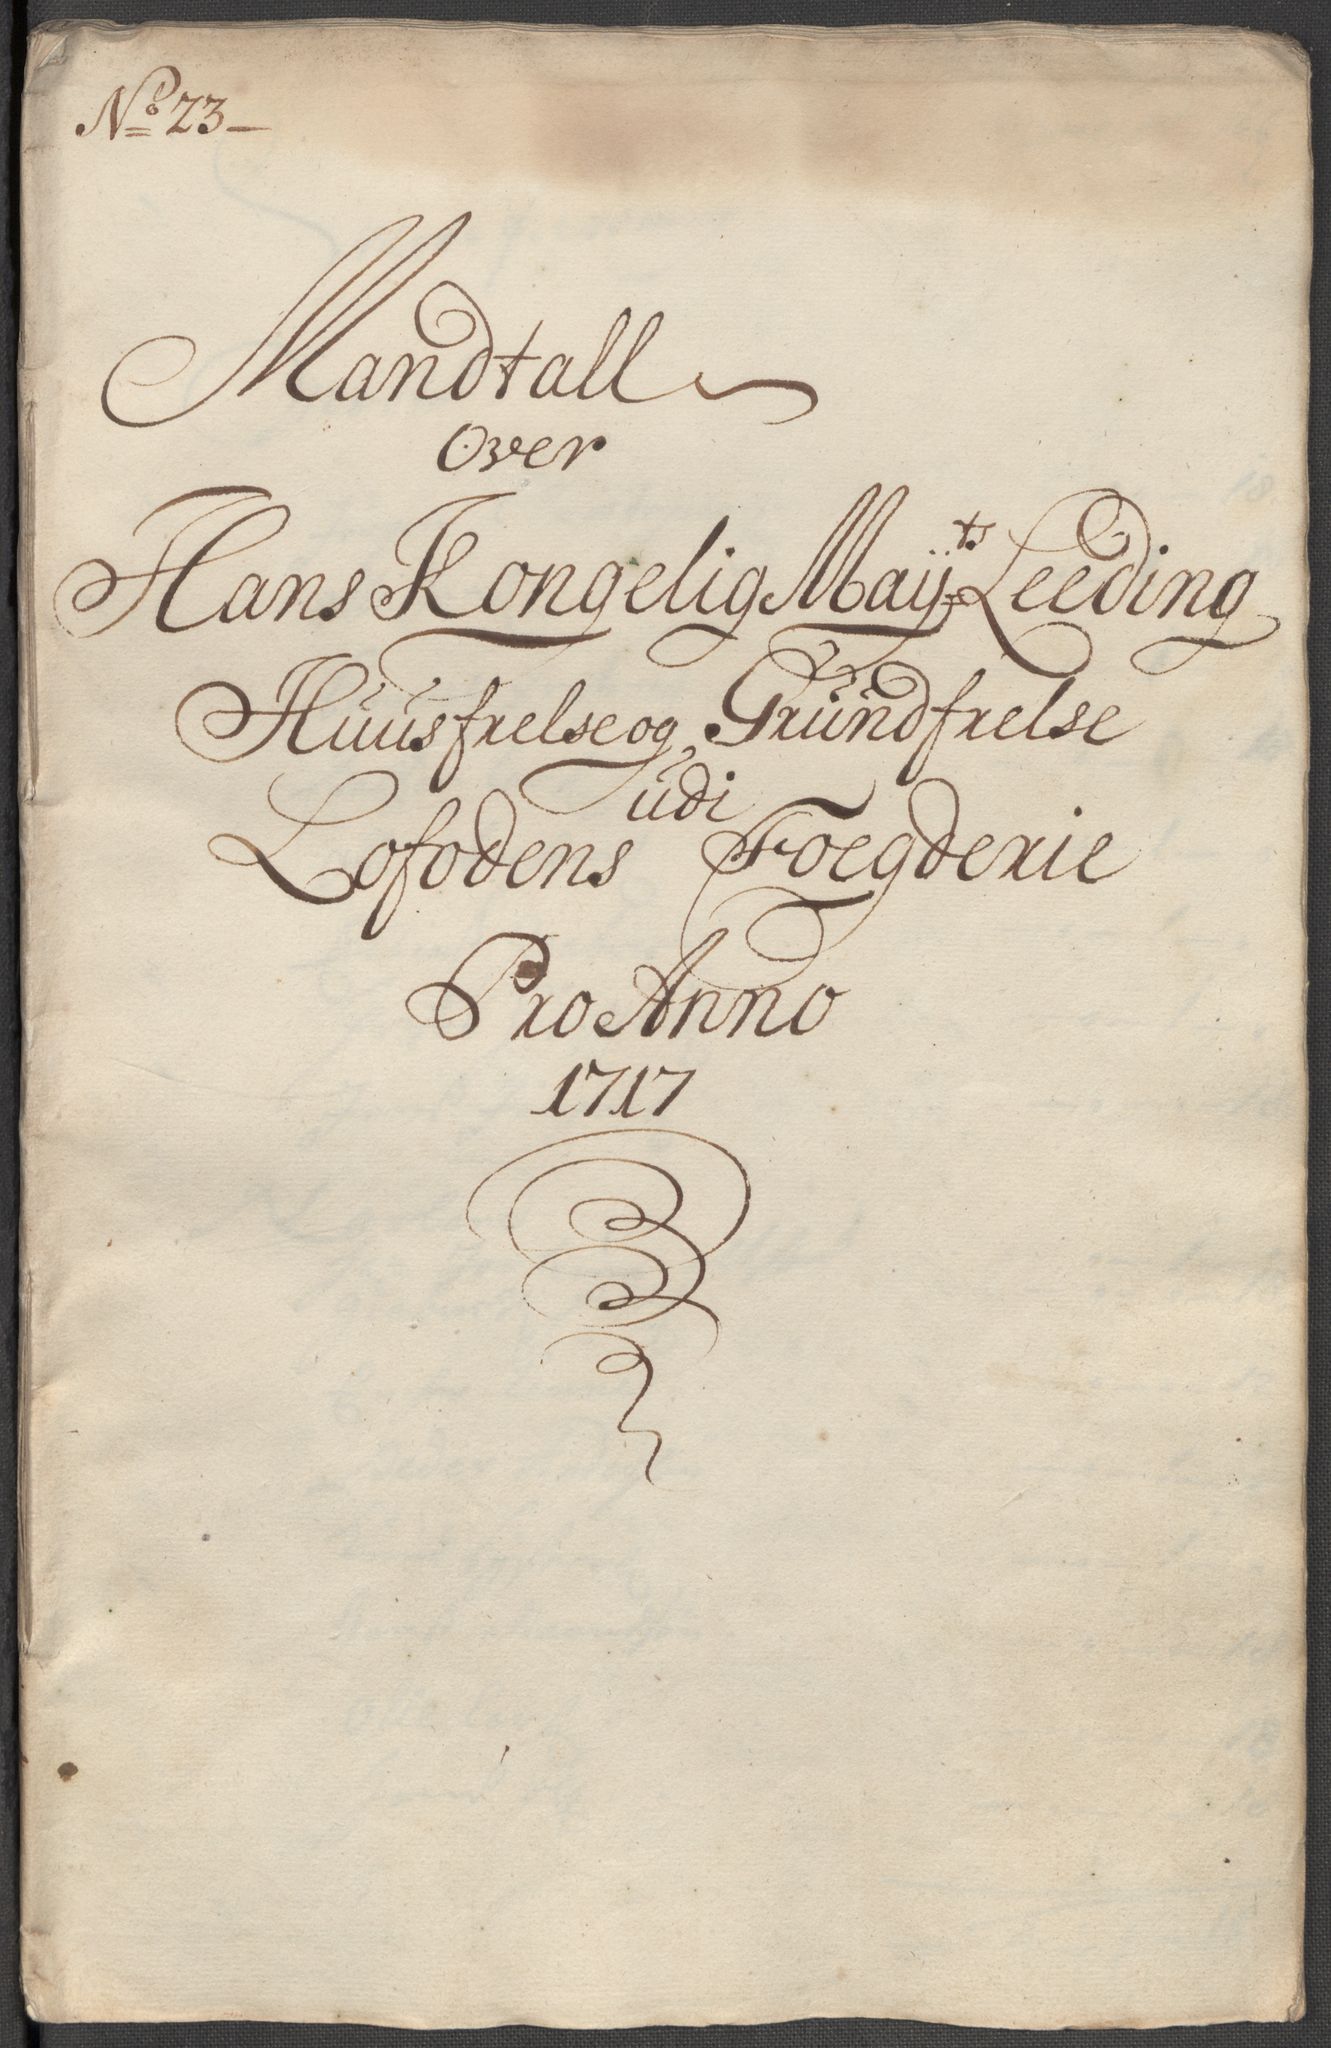 No 23
Mandtall
Over
Hans Kongelig Maÿts Leeding
Huusfrelse og Grundfrelse
udi
Lofodens Foegderie
Pro Anno
1717